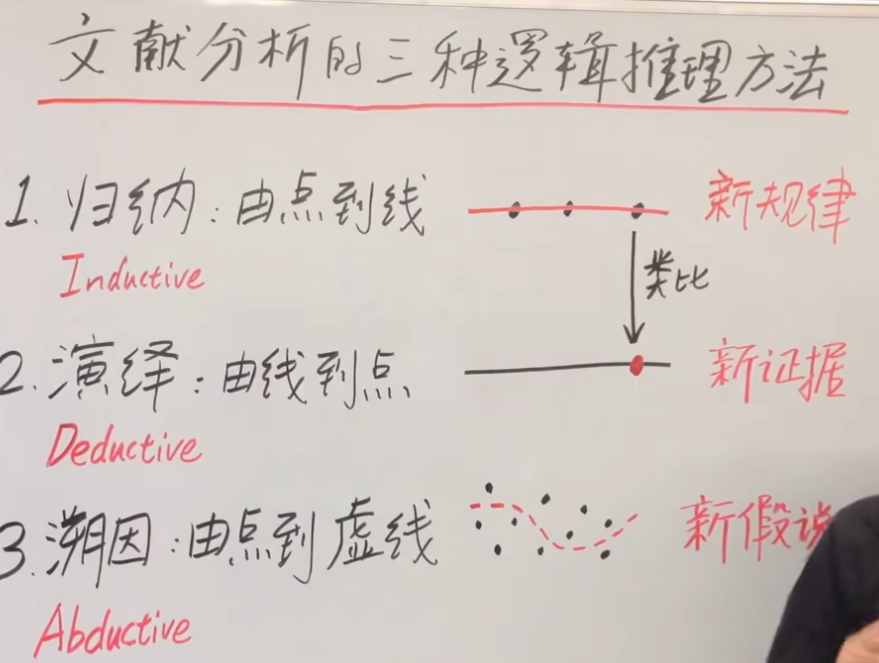 文献分析的三种逻辑推理方法
1. 归纳：由点到线
新规律
Inductive
类比
2. 演绎：由线到点
新证据
Deductive
3. 溯因：由点到虚线
新假说
Abductive